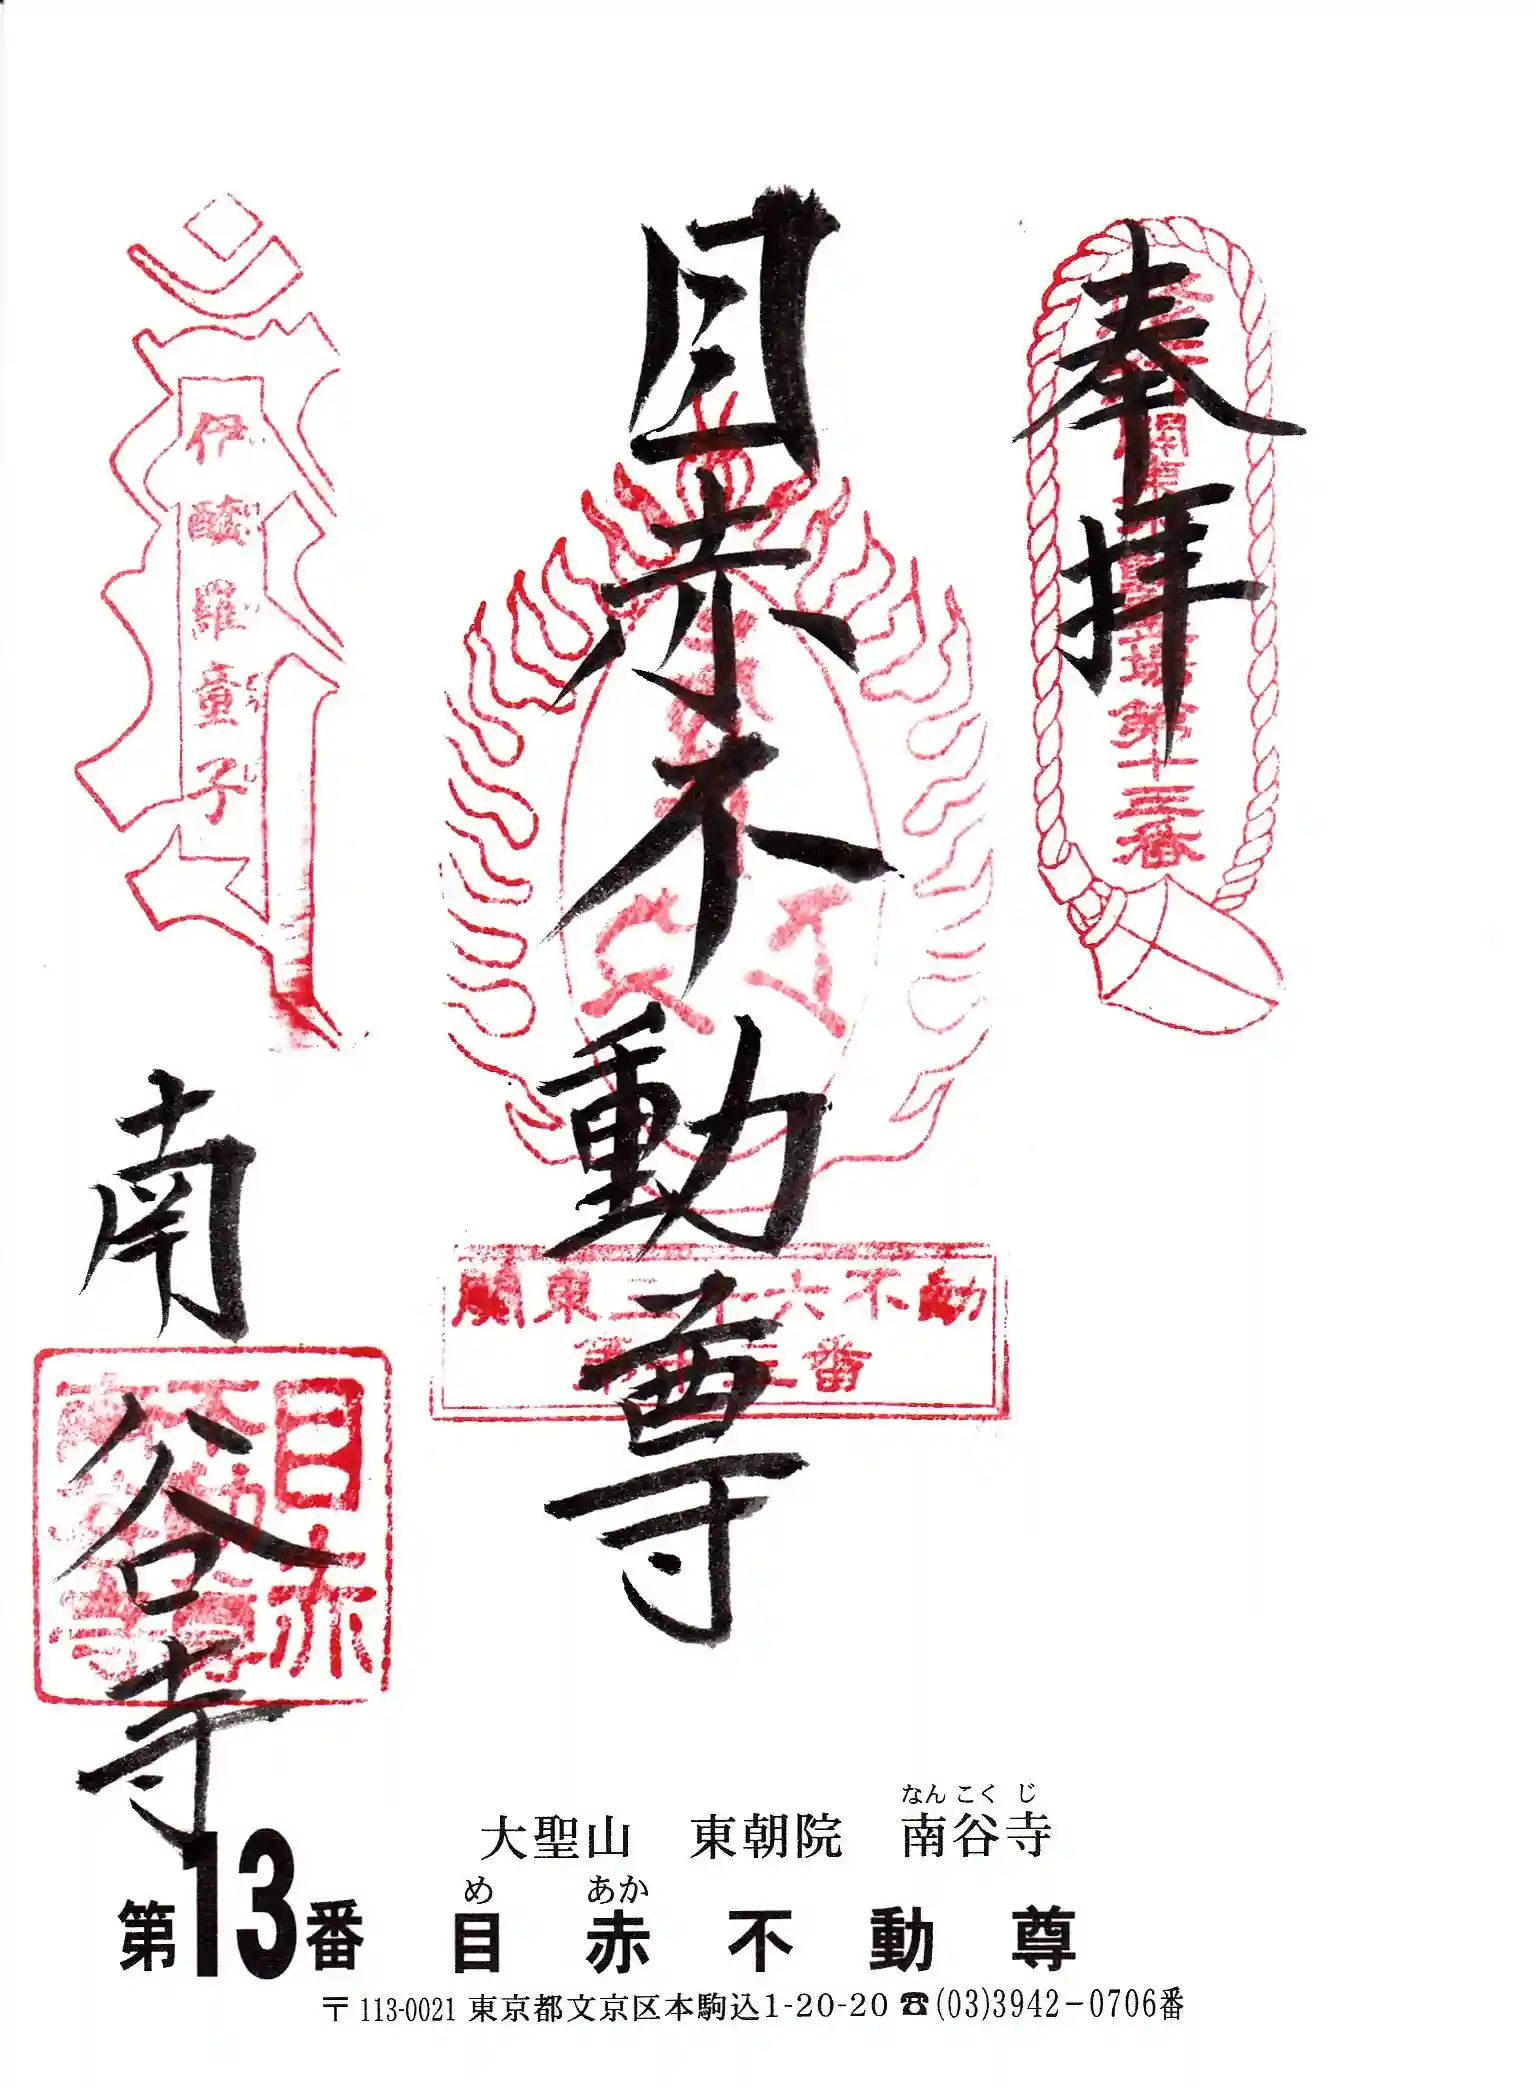 奉拝
第十三番
目赤不動尊
関東三十六不動
第十三番
伊醯羅童子
南谷寺
目赤
なんこくじ
大聖山 東朝院 南谷寺
め あか
第13番 目赤不動尊
〒113-0021 東京都文京区本駒込1-20-20 ☎(03)3942-0706番